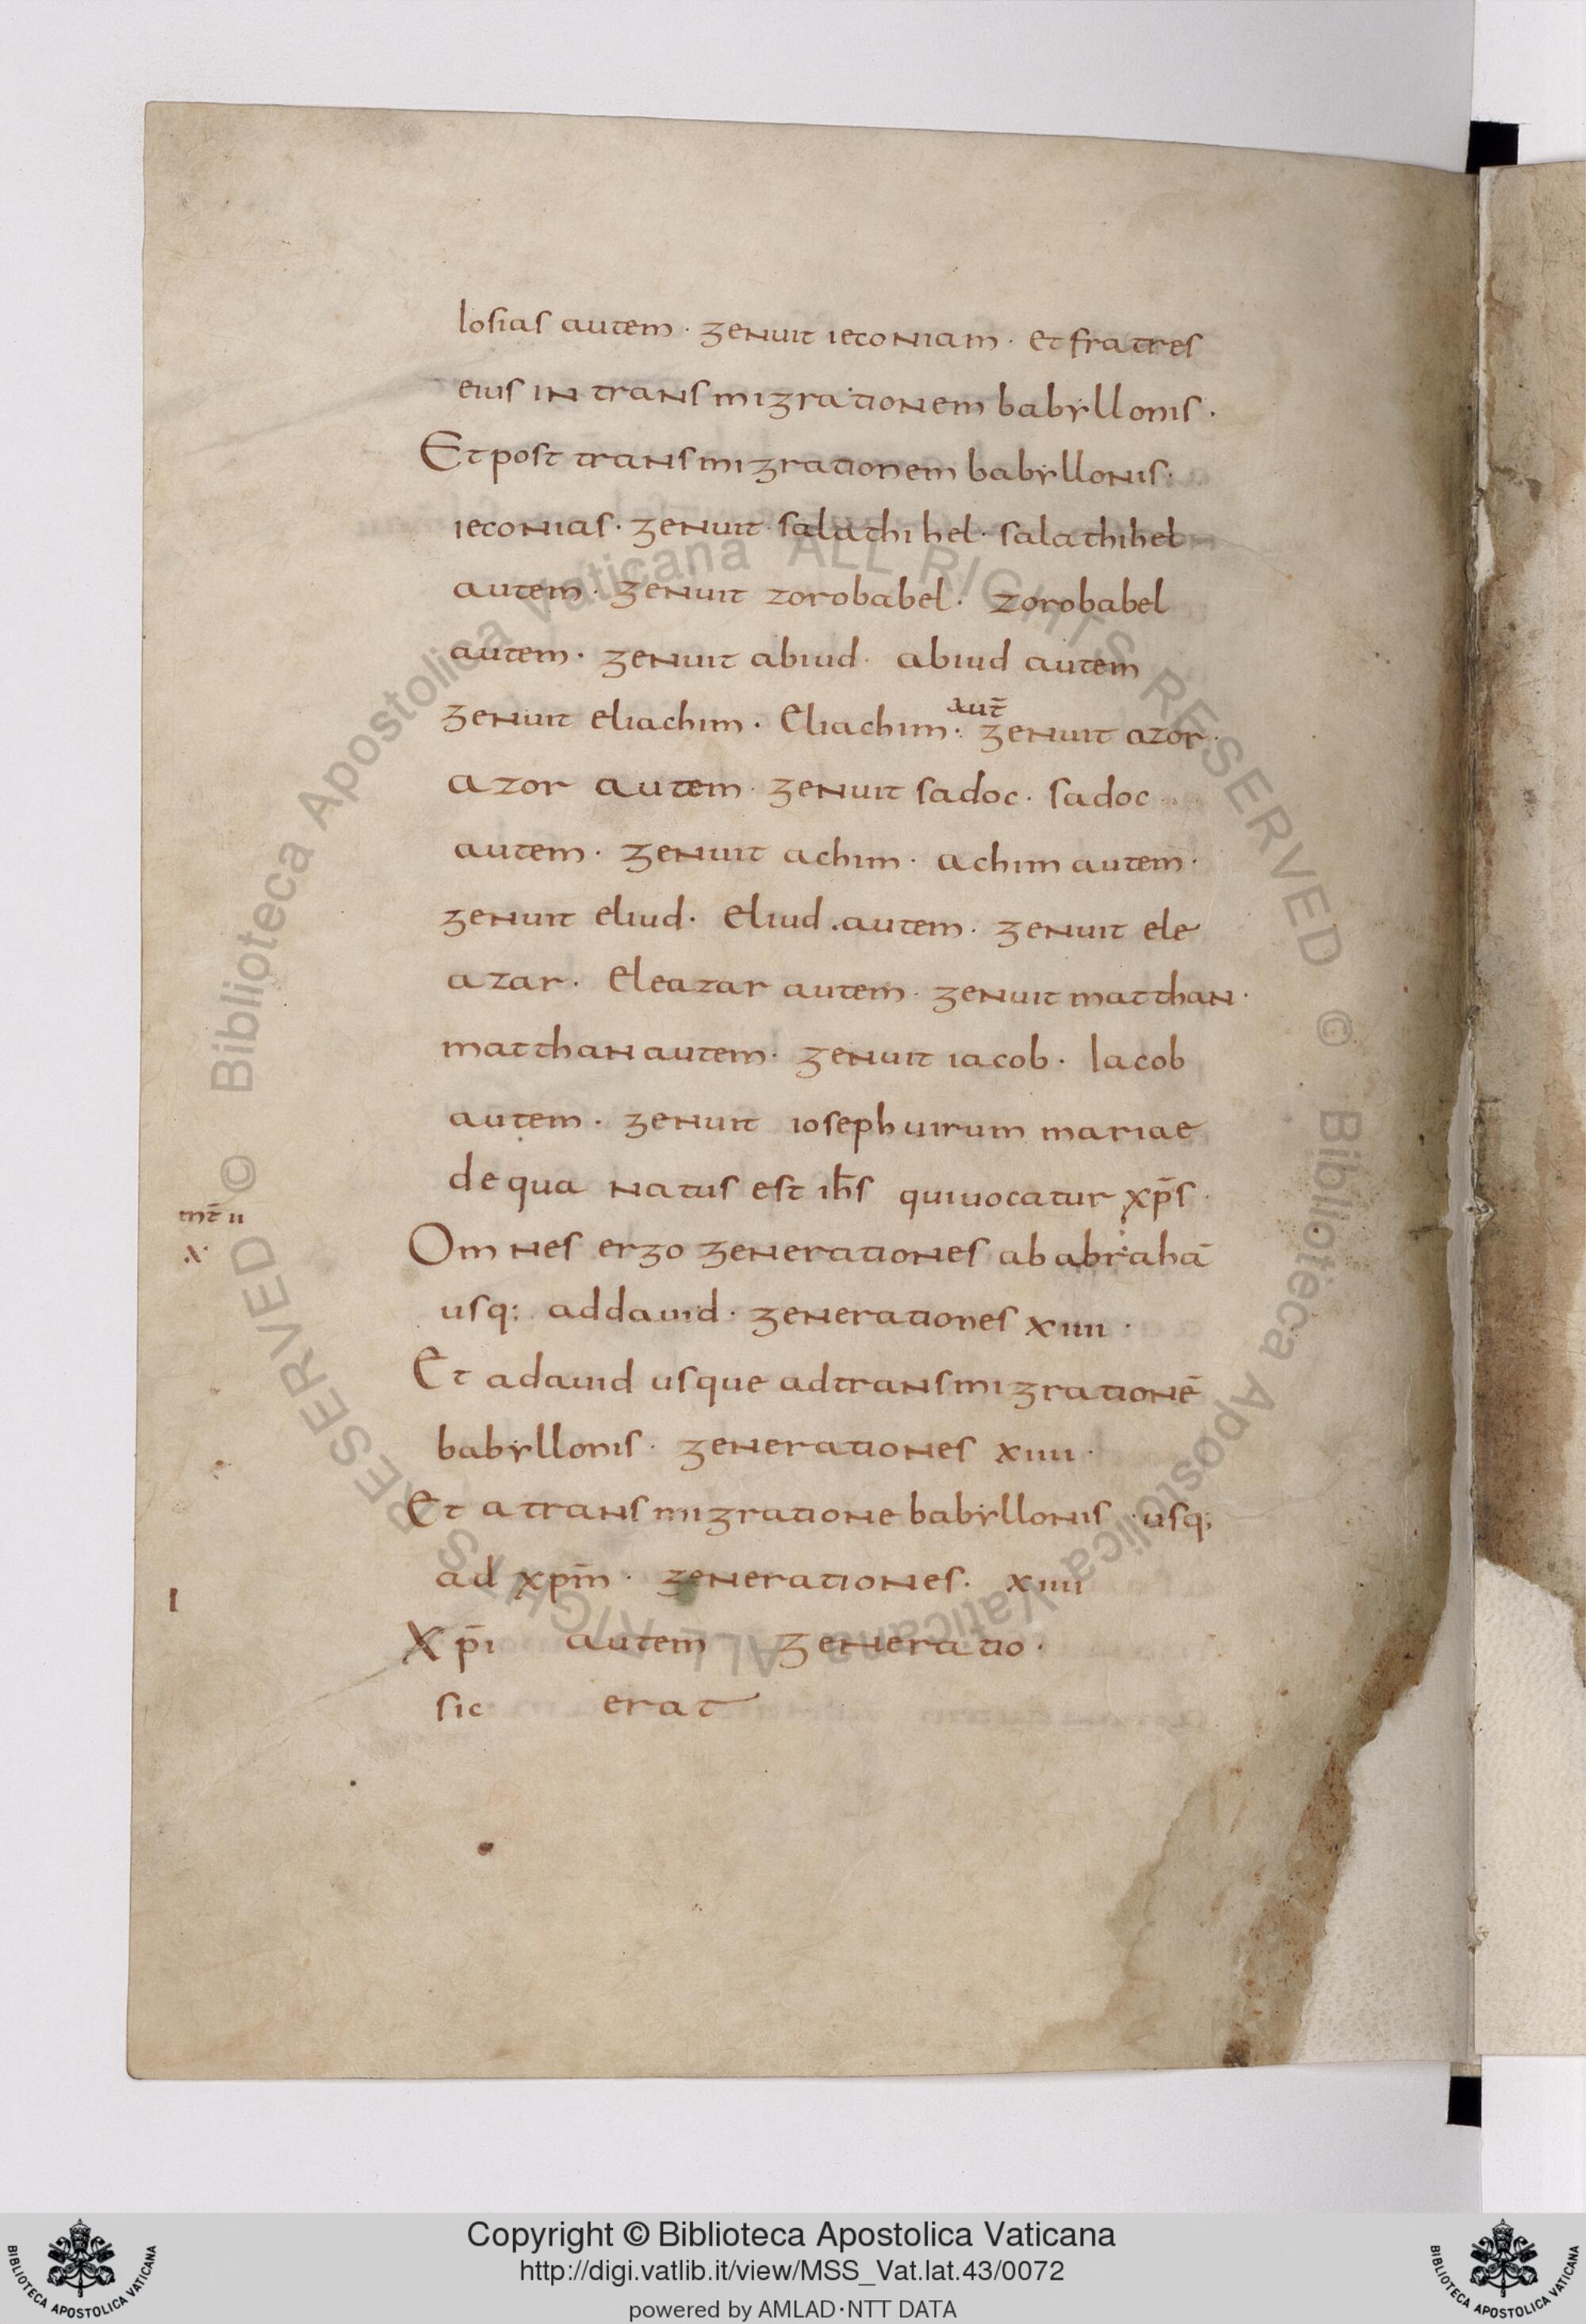 Iosias autem · genuit ieconiam · et fratres
eius in transmigrationem babyllonis ·
Et post transmigrationem babyllonis ·
ieconias · genuit salathihel · salathihel
autem · genuit zorobabel · zorobabel
autem · genuit abiud · abiud autem
aut̄
genuit eliachim · Eliachim · genuit azor ·
azor autem · genuit sadoc · sadoc
autem · genuit achim · achim autem ·
genuit eliud · eliud · autem · genuit ele
azar · Eleazar autem · genuit matthan ·
matthan autem · genuit iacob · Iacob
autem · genuit ioseph uirum mariae
de qua natus est ih̄s qui uocatur xp̄s ·
mt̄ ii
x ·
Omnes ergo generationes ab abrahā
usq; ad dauid · generationes xiiii ·
Et a dauid usque ad transmigrationē
babyllonis · generationes xiiii ·
Et a transmigratione babyllonis · usq;
ad xpm̄ · generationes · xiiii
I
Xp̄i autem generatio ·
sic erat
© Biblioteca Apostolica Vaticana ALL RIGHTS RESERVED
© Biblioteca Apostolica Vaticana ALL RIGHTS RESERVED
Copyright © Biblioteca Apostolica Vaticana
http://digi.vatlib.it/view/MSS_Vat.lat.43/0072
powered by AMLAD·NTT DATA
BIBLIOTECA APOSTOLICA VATICANA
BIBLIOTECA APOSTOLICA VATICANA